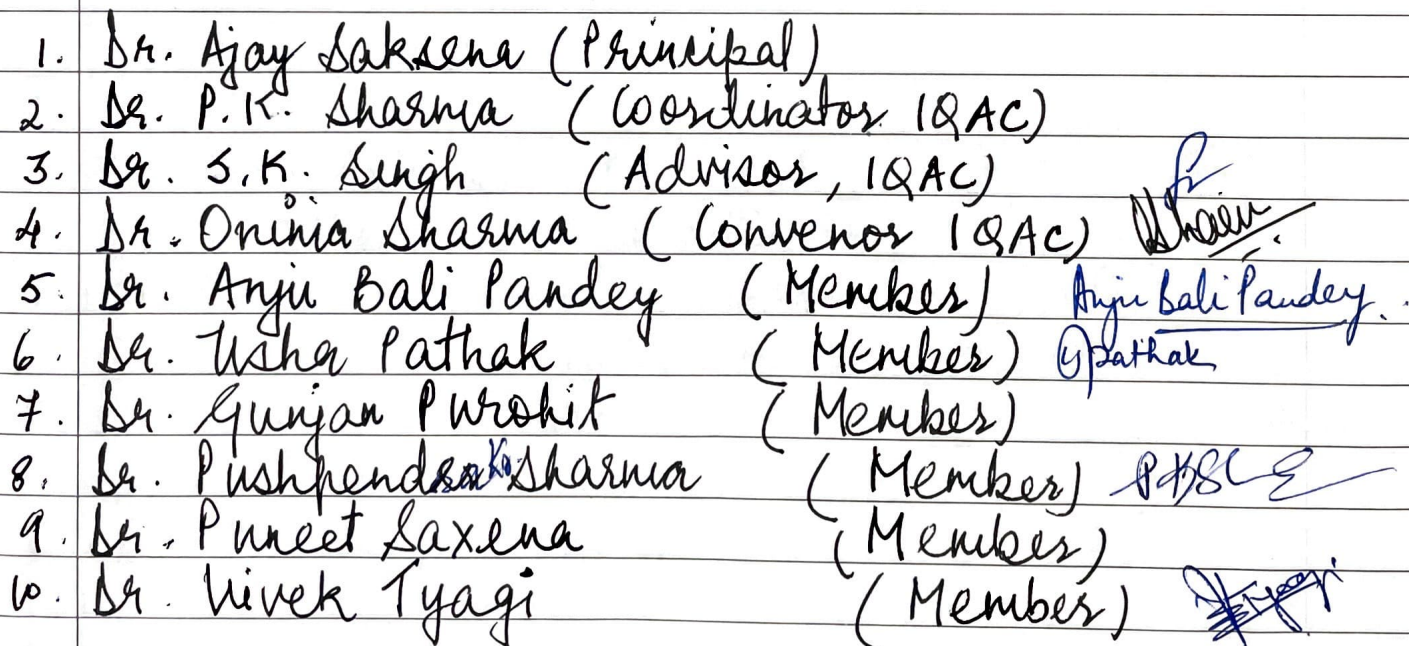 1. Dr. Ajay Saksena (Principal)
2. Dr. P.K. Sharma (Coordinator IQAC)
3. Dr. S.K. Singh (Advisor, IQAC)
4. Dr. Onima Sharma (Convenor IQAC)
5. Dr. Anju Bali Pandey (Member) Anju Bali Pandey.
6. Dr. Usha Pathak (Member) Upathak
7. Dr. Gunjan Purohit (Member)
8. Dr. Pushpendra Kr. Sharma (Member)
9. Dr. Puneet Saxena (Member)
10. Dr. Vivek Tyagi (Member)